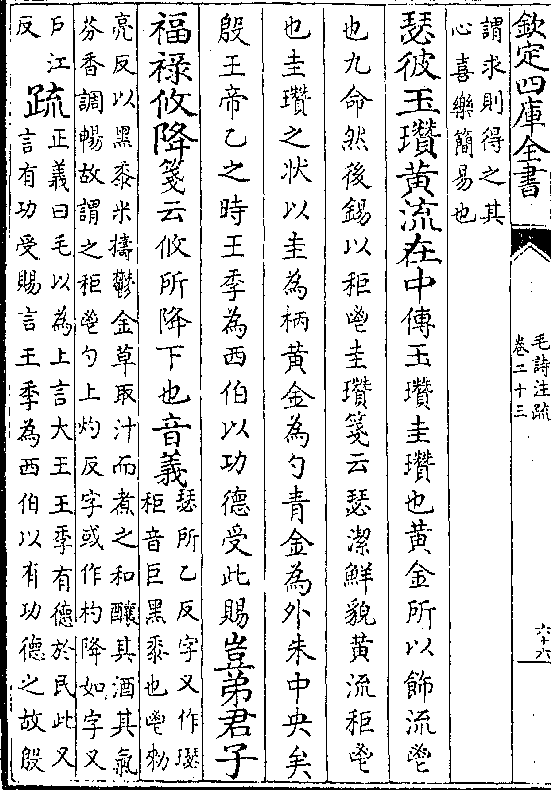 欽定四庫全書
毛詩注疏
卷二十三
六十八
謂求則得之其
心喜樂簡易也
瑟彼玉瓚黃流在中傳玉瓚圭瓚也黃金所以飾流鬯
也九命然後錫以秬鬯圭瓚箋云瑟潔鮮貌黃流秬鬯
也圭瓚之狀以圭為柄黃金為勺青金為外朱中央矣
殷王帝乙之時王季為西伯以功德受此賜豈弟君子
福祿攸降箋云攸所降下也音義
瑟所乙反字又作璱
秬音巨黑黍也鬯勑
亮反以黑黍米擣鬱金草取汁而煮之和釀其酒其氣
芬香調暢故謂之秬鬯勺上灼反字或作杓降如字又
戶江
反
疏
正義曰毛以為上言大王王季有德於民此又
言有功受賜言王季為西伯以有功德之故殷